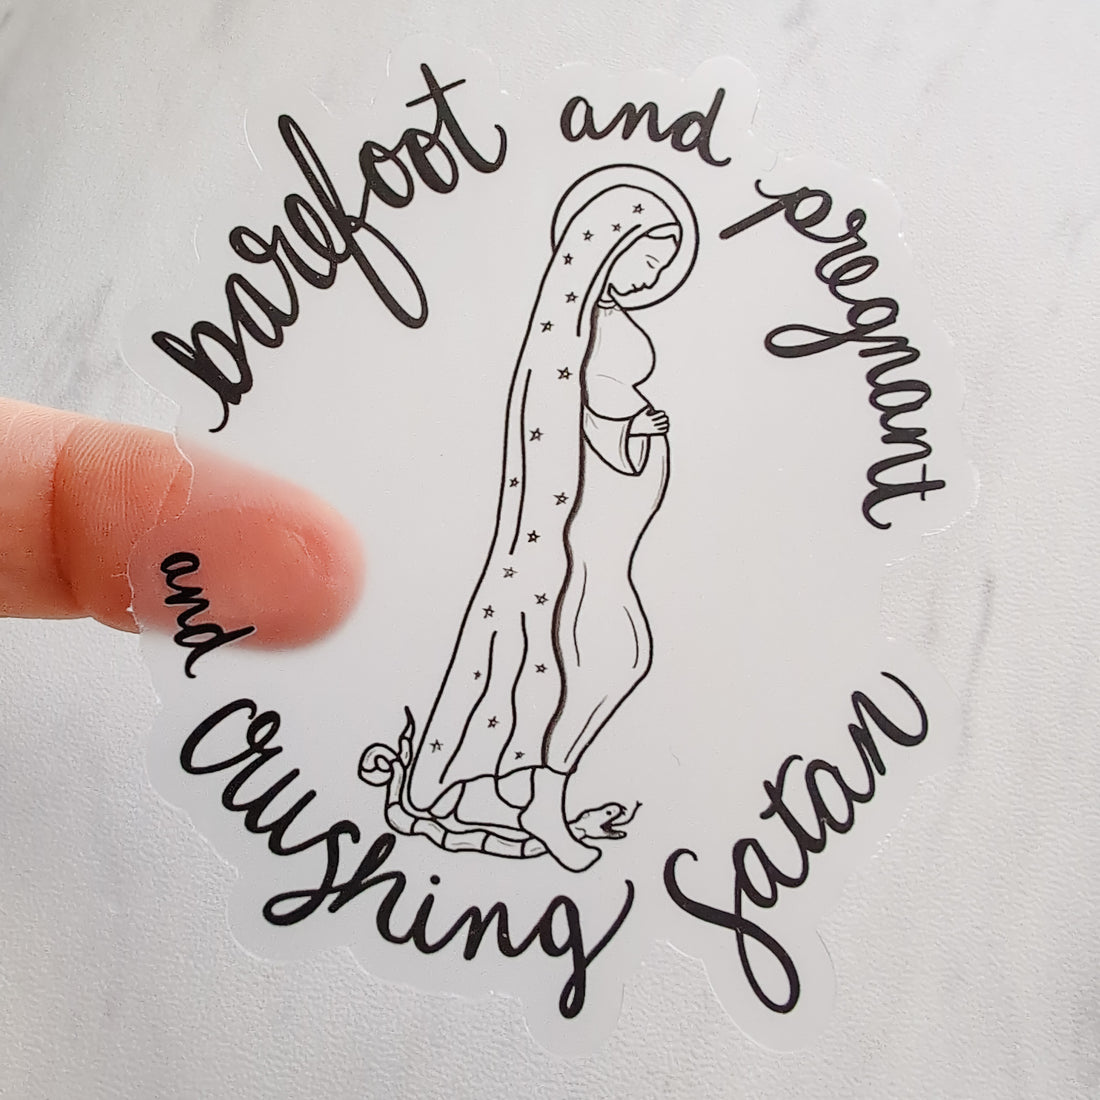 barefoot and pregnant
and crushing Satan